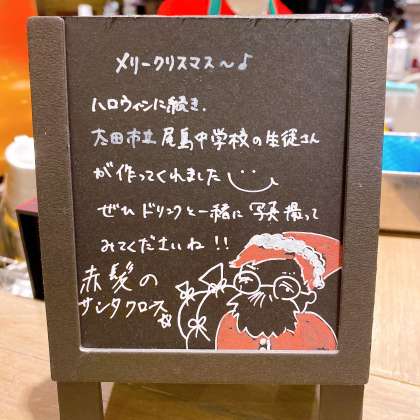 メリークリスマス～♪
ハロウィンに続き、
太田市立尾島中学校の生徒さん
が作ってくれました
ぜひドリンクと一緒に写真撮って
みてくださいね!!
赤髪の
サンタクロース